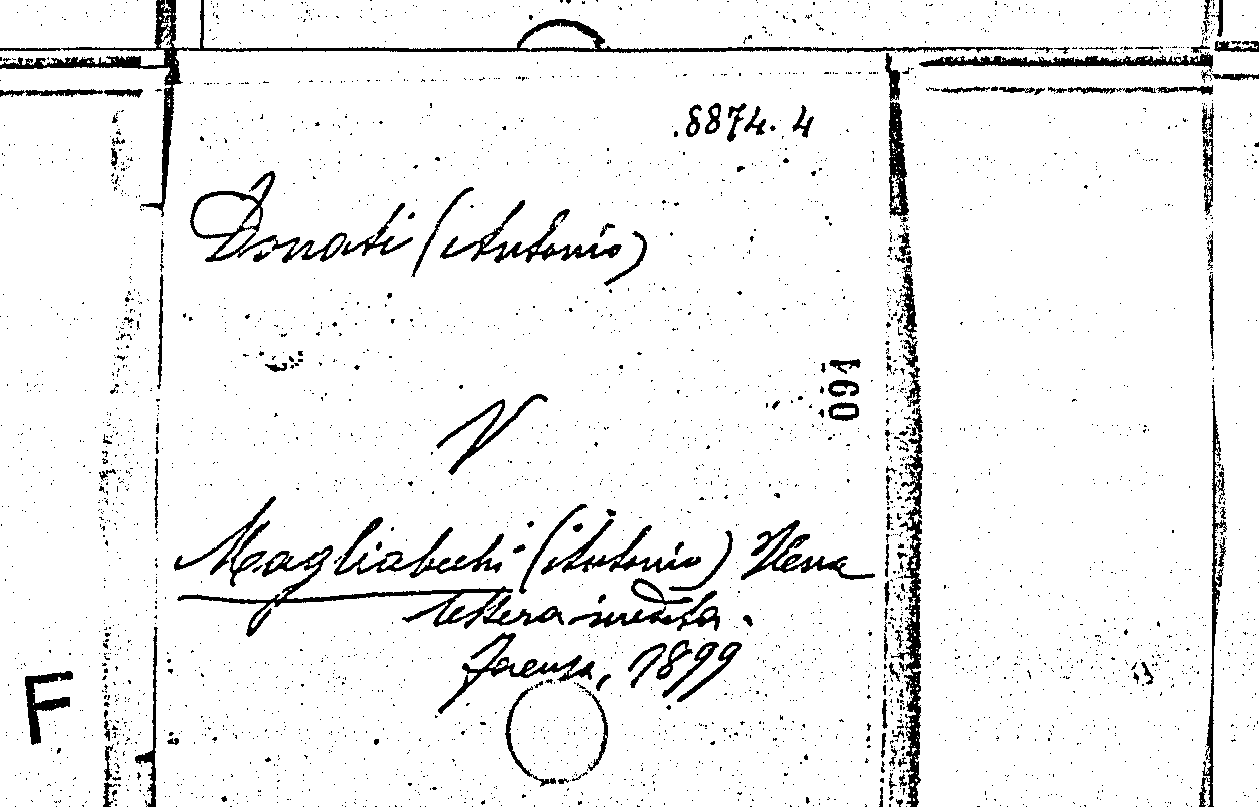 8874.4
Donati (Antonio)
091
V
Magliabechi (Antonio) Una
lettera inedita.
Faenza, 1899
F